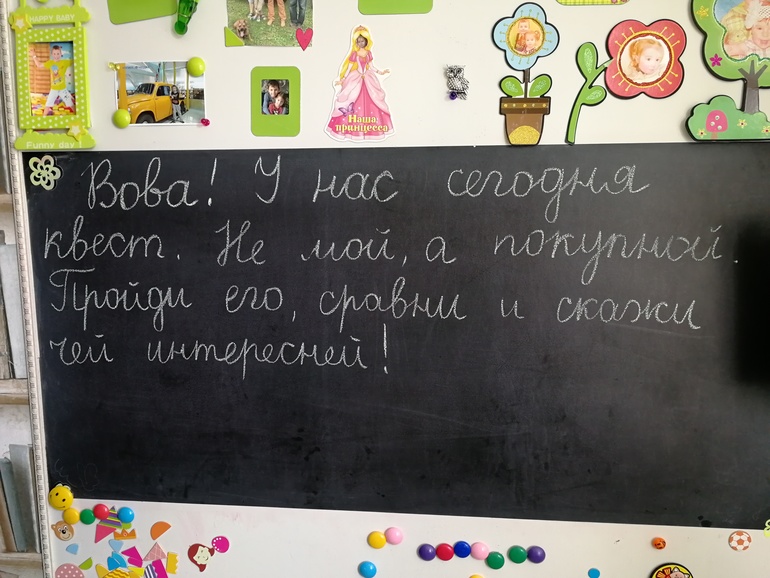 HAPPY BABY
Funny day!
Наша
принцесса
Вова! У нас сегодня
квест. Не мой, а покупной.
Пройди его, сравни и скажи
чей интересней!